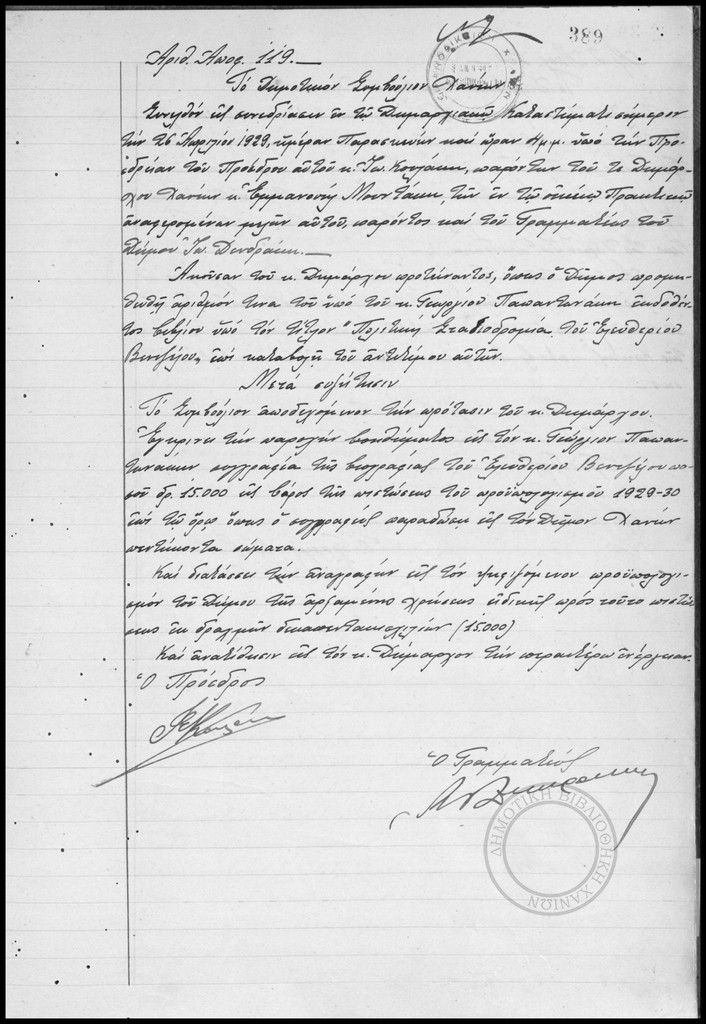 389
Ἀριθ. Ἀποφ. 119.—
Τὸ Δημοτικὸν Συμβούλιον Χανίων
Συνελθὸν εἰς συνεδρίασιν ἐν τῷ Δημαρχιακῷ Καταστήματι σήμερον
τὴν 26 Ἀπριλίου 1929, ἡμέραν Παρασκευὴν καὶ ὥραν μ.μ. ὑπὸ τὴν Προ-
εδρείαν τοῦ Προέδρου αὐτοῦ κ. Ἰω. Κουλάκη, παρόντων τοῦ τε Δημάρ-
χου Χανίων κ. Ἐμμανουὴλ Μουντάκη, τῶν ἐν τῷ οἰκείῳ Πρακτικῷ
ἀναφερομένων μελῶν αὐτοῦ, παρόντος καὶ τοῦ Γραμματέως τοῦ
Δήμου Ἰω. Δενδράκη.—
Ἀκοῦσαν τοῦ κ. Δημάρχου προτείναντος, ὅπως ὁ Δῆμος προμη-
θευθῇ ἀριθμόν τινα τοῦ ὑπὸ τοῦ κ. Γεωργίου Παπαντωνάκη ἐκδοθέν-
τος βιβλίου ὑπὸ τὸν τίτλον "Πολιτικὴ Σταδιοδρομία τοῦ Ἐλευθερίου
Βενιζέλου„ ἐπὶ καταβολῇ τοῦ ἀντιτίμου αὐτῶν.
Μετὰ συζήτησιν
Τὸ Συμβούλιον ἀποδεχόμενον τὴν πρότασιν τοῦ κ. Δημάρχου.
Ἐγκρίνει τὴν παροχὴν βοηθήματος εἰς τὸν κ. Γεώργιον Παπαν-
τωνάκην συγγραφέα τῆς βιογραφίας τοῦ Ἐλευθερίου Βενιζέλου πο-
σοῦ δρ. 15.000 εἰς βάρος τῆς πιστώσεως τοῦ προϋπολογισμοῦ 1929-30
ἐπὶ τῷ ὅρῳ ὅπως ὁ συγγραφεὺς παραδώσῃ εἰς τὸν Δῆμον Χανίων
πεντήκοντα σώματα.
Καὶ διατάσσει τὴν ἀναγραφὴν εἰς τὸν ψηφιζόμενον προϋπολογι-
σμὸν τοῦ Δήμου τῆς ἀρξαμένης χρήσεως εἰδικῆς πρὸς τοῦτο πιστώ-
σεως ἐκ δραχμῶν δεκαπεντακισχιλίων (15.000)
Καὶ ἀνατίθησιν εἰς τὸν κ. Δήμαρχον τὴν περαιτέρω ἐνέργειαν.
Ὁ Πρόεδρος
Ὁ Γραμματεὺς
ΔΗΜΟΤΙΚΗ ΒΙΒΛΙΟΘΗΚΗ ΧΑΝΙΩΝ